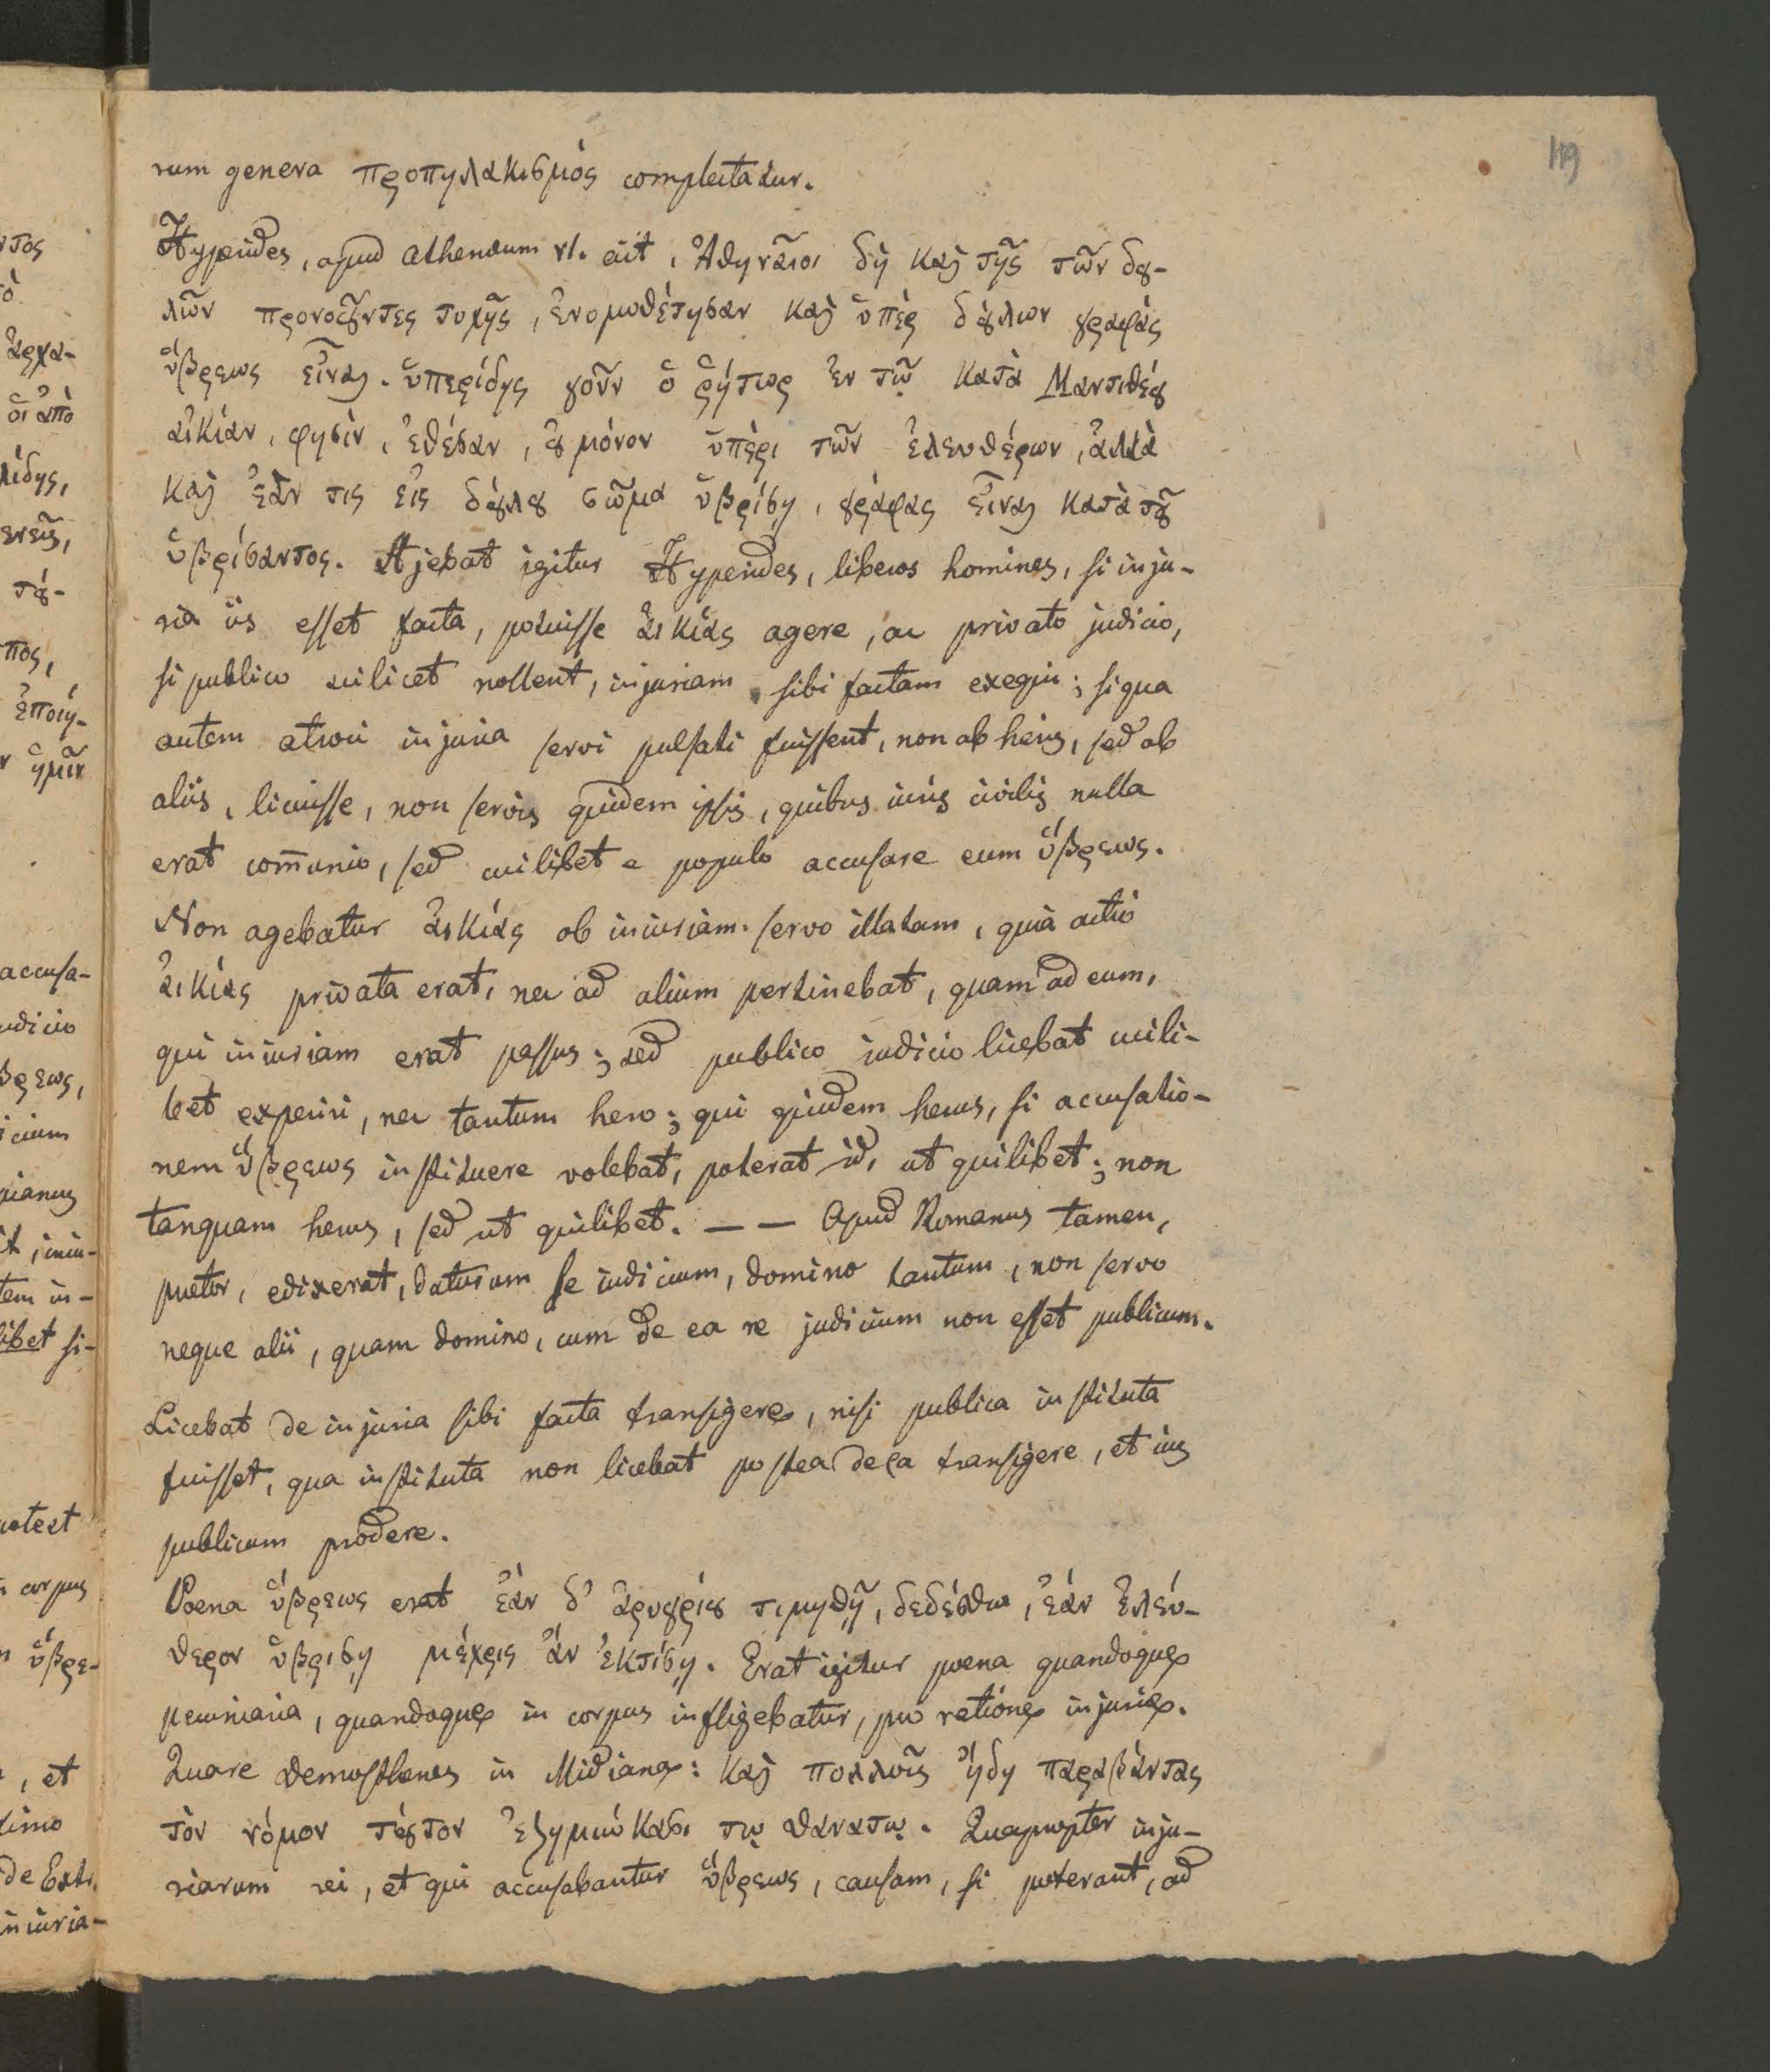 119
rum genera προπηλακισμὸς complectatur.
Hyperides, apud Athenæum VI. ait, Ἀθηναῖοι δὴ καὶ τῆς τῶν δȣ-
λῶν προνοȣ̃ντες τυχῆς, ἐνομοθέτησαν καὶ ὑπὲρ δȣ́λων γραφὰς
ὕβρεως εἶναι. ὑπερίδης γοῦν ὁ ῥήτωρ ἐν τῷ κατὰ Μαντιθέȣ
αἰκίαν, φησὶν, ἐθέσαν, ȣ̓ μόνον ὑπὲρι τῶν ἐλευθέρων, ἀλλὰ
καὶ ἐὰν τις εἰς δȣ́λȣ σῶμα ὑβρίση, γράφας εἶναι κατὰ τȣ̃
ὑβρίσαντος. Ajebat igitur Hyperides, liberos homines, si inju-
ria iis esset facta, potuisse ἀικίας agere, ac privato judicio,
si publico scilicet nollent, injuriam sibi factam exequi; si qua
autem atroci injuria servi pulsati fuissent, non ab heris, sed ab
aliis, licuisse, non servis quidem ipsis, quibus iuris civilis nulla
erat com̄unio, sed cuilibet e populo accusare eum ὕβρεως.
Non agebatur ἀικίας ob iniuriam servo illatam, quia actio
ἀικίας privata erat, nec ad alium pertinebat, quam ad eum,
qui iniuriam erat passus; sed publico iudicio licebat cuili-
bet experiri, nec tantum hero; qui quidem herus, si accusatio-
nem ὕβρεως instituere volebat, poterat id, ut quilibet; non
tanquam herus, sed ut quilibet. — — Apud Romanos tamen,
prætor, edixerat, daturum se iudicium, domino tantum, non servo
neque alii, quam domino, cum de ea re judicium non esset publicum.
Licebat de injuria sibi facta transigere, nisi publica instituta
fuisset, qua instituta non licebat postea de ea transigere, et ius
publicum prodere.
Poena ὕβρεως erat ἐὰν δ' ἀργυρίȣ τιμηθῇ, δεδέσθω, ἐάν ἐλεύ-
θερον ὕβρισῃ μέχρις ἂν ἐκτίσῃ. Erat igitur poena quandoque
pecuniaria, quandoque in corpus infligebatur, pro ratione injuriæ.
Quare Demosthenes in Midiana: καὶ πολλοῖς ἤδη παραβάντας
τὸν νόμον τȣ́τον ἐζημιώκασι τῳ θανατῳ. Quapropter inju-
riarum rei, et qui accusabantur ὕβρεως, causam, si poterant, ad
ἀρχα-
οἱ ἀπὸ
λίδης,
τȣ́-
ἐποίη-
ἡμῖν
accusa-
udicio
βρεως,
icium
tem in-
libet si-
corpus
ὕβρε-
, et
de Extr.
iniuria-